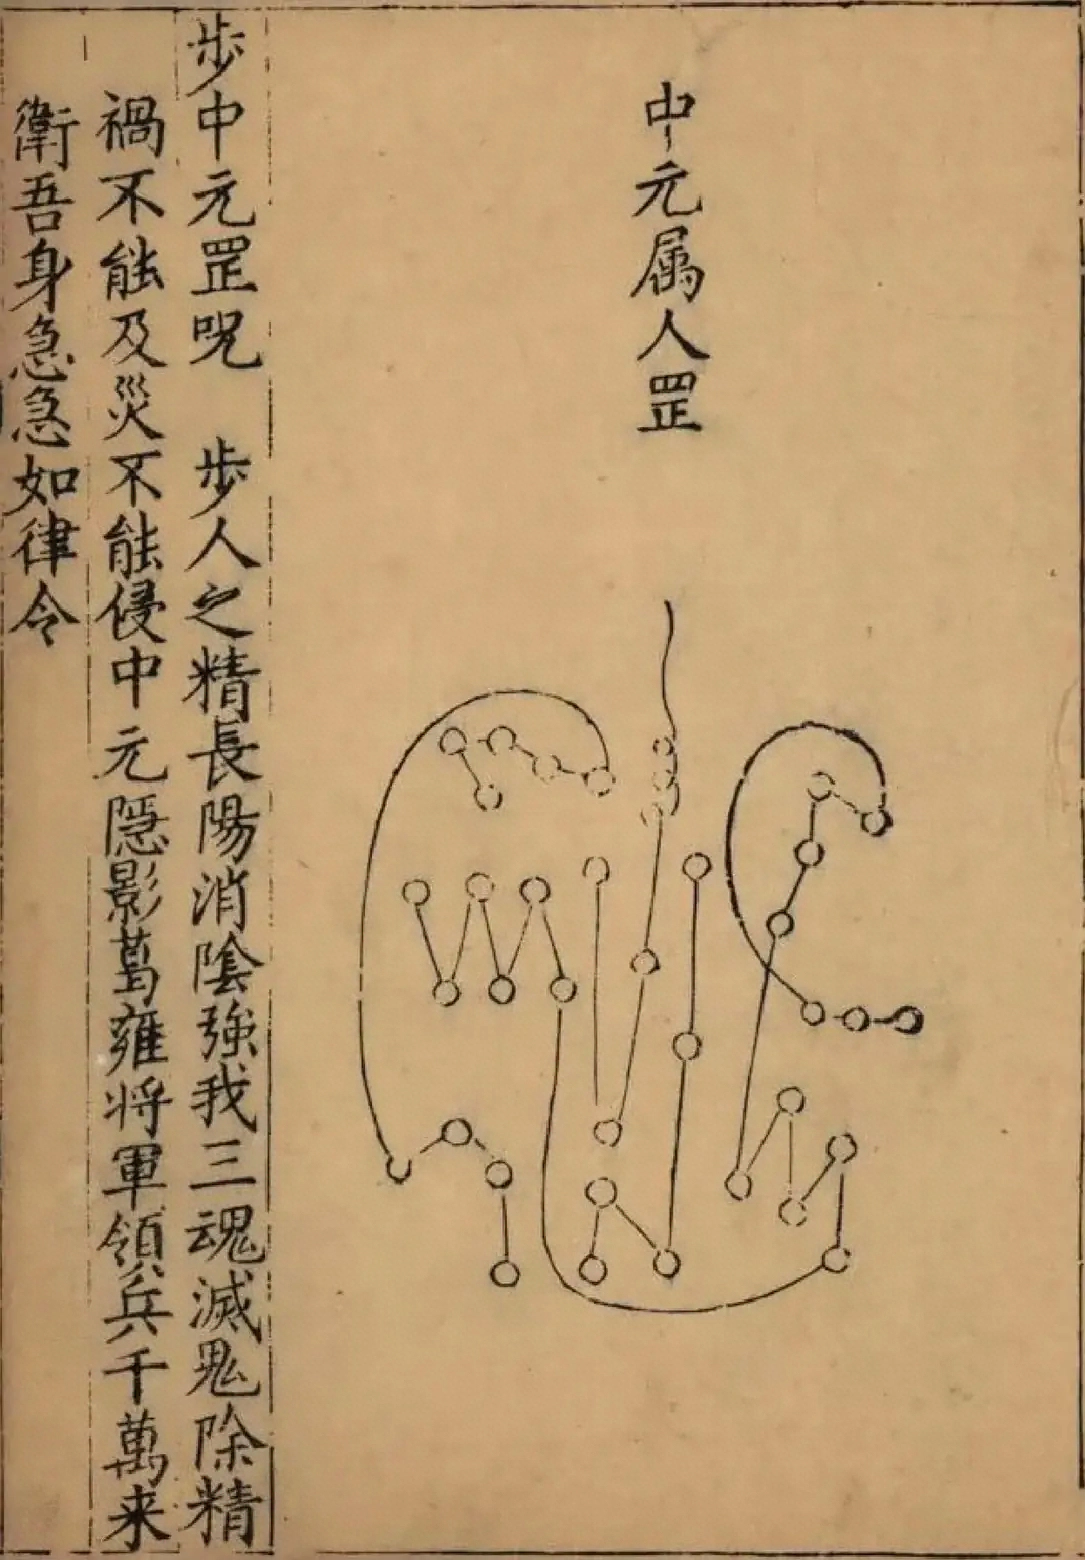 中元属人罡
步中元罡呪　步人之精長陽消陰強我三魂滅鬼除精
禍不能及災不能侵中元隱影葛雍将軍領兵千萬来
衛吾身急急如律令